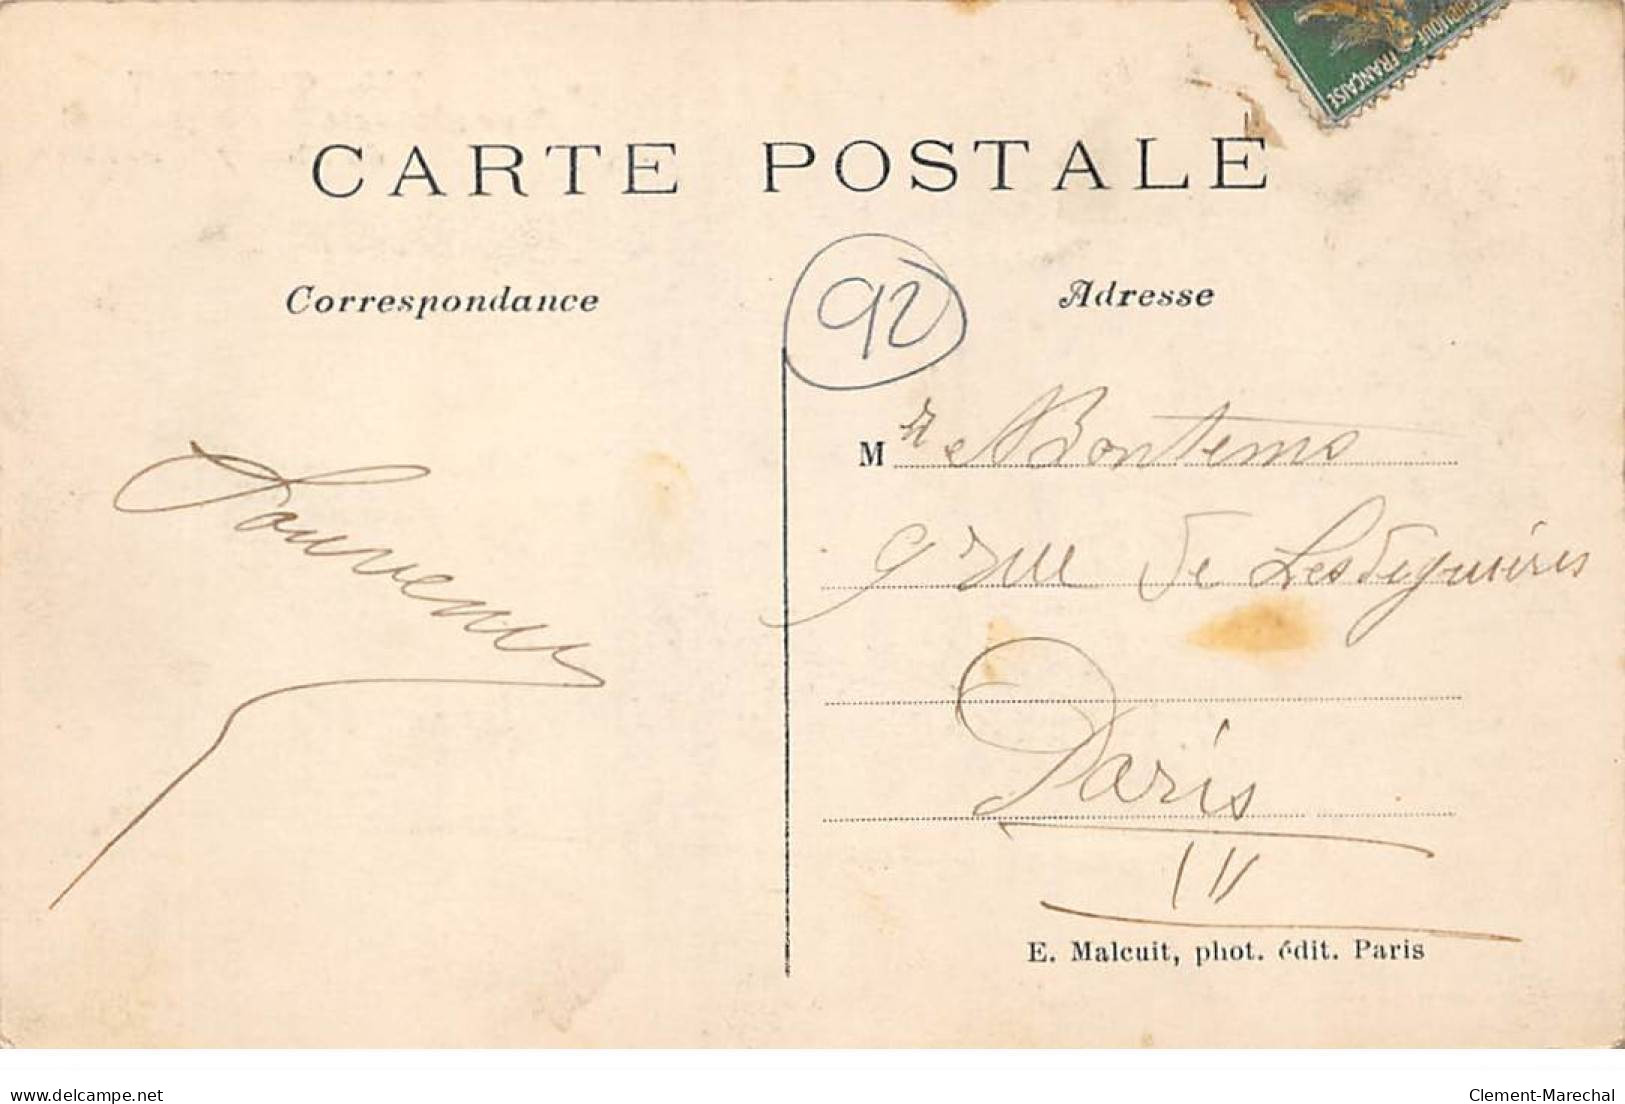 RÉPUBLIQUE FRANÇAISE
CARTE POSTALE
Correspondance
Adresse
92
Souvenir
Mr Bontems
9 rue de Lesdiguières
Paris
IV
E. Malcuit, phot. édit. Paris
delcampe.net
Clement-Marechal